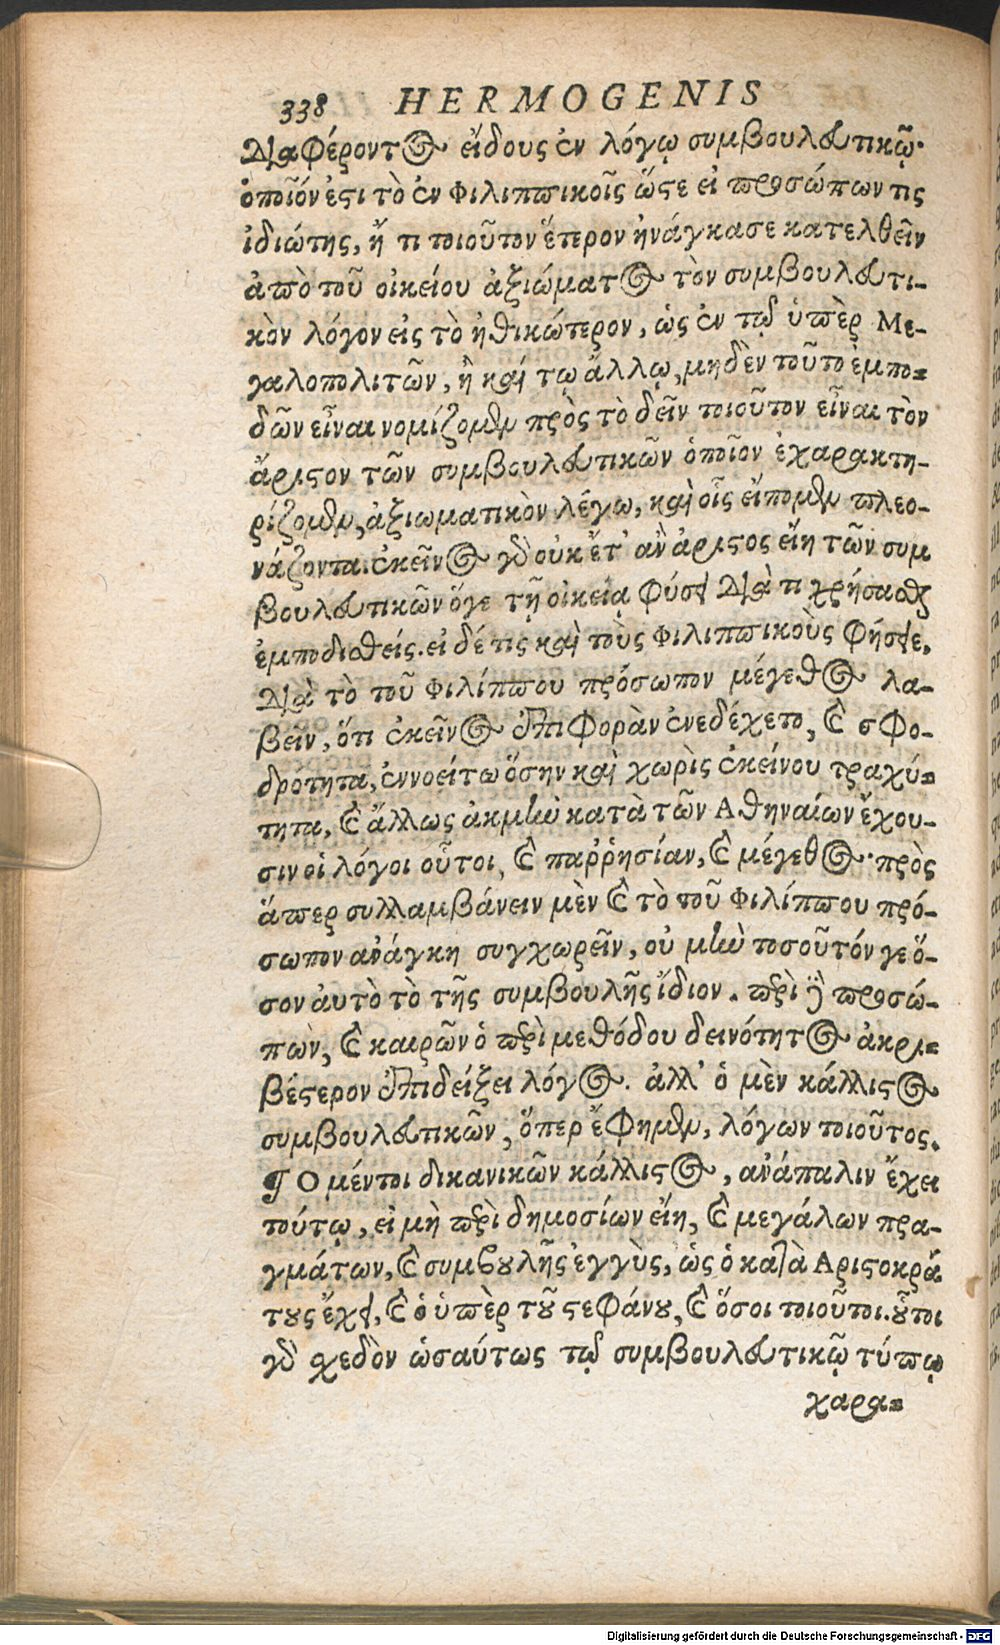 338 HERMOGENIS
διαφέροντος εἴδους ἐν λόγῳ συμβουλευτικῷ·
ὁποῖόν ἐστι τὸ ἐν Φιλιππικοῖς ὥστε εἰ προσώπων τις
ἰδιώτης, ἤ τι τοιοῦτον ἕτερον ἠνάγκασε κατελθεῖν
ἀπὸ τοῦ οἰκείου ἀξιώματος τὸν συμβουλευτι-
κὸν λόγον εἰς τὸ ἠθικώτερον, ὡς ἐν τῷ ὑπὲρ Με-
γαλοπολιτῶν, ἢ καί τω ἄλλῳ, μηδὲν τοῦτο ἐμπο-
δῶν εἶναι νομίζομεν πρὸς τὸ δεῖν τοιοῦτον εἶναι τὸν
ἄριστον τῶν συμβουλευτικῶν ὁποῖον ἐχαρακτη-
ρίζομεν, ἀξιωματικὸν λέγω, καὶ οἷς εἴπομεν πλεο-
νάζοντα. ἐκεῖνος γὰρ οὐκ ἔτ' ἂν ἄριστος εἴη τῶν συμ
βουλευτικῶν ὅγε τῇ οἰκείᾳ φύσει διά τι χρήσασθαι
ἐμποδισθείς. εἰ δέ τις καὶ τοὺς Φιλιππικοὺς φήσειε,
διὰ τὸ τοῦ Φιλίππου πρόσωπον μέγεθος λα-
βεῖν, ὅτι ἐκεῖνος ἐπιφορὰν ἐνεδέχετο, καὶ σφο-
δρότητα, ἐννοείτω ὅσην καὶ χωρὶς ἐκείνου τραχύ-
τητα, καὶ ἄλλως ἀκμὴν κατὰ τῶν Αθηναίων ἔχου-
σιν οἱ λόγοι οὗτοι, καὶ παῤῥησίαν, καὶ μέγεθος· πρὸς
ἅπερ συλλαμβάνειν μὲν καὶ τὸ τοῦ Φιλίππου πρό-
σωπον ἀνάγκη συγχωρεῖν, οὐ μὴν τοσοῦτόν γε ὅ-
σον ἀυτὸ τὸ τῆς συμβουλῆς ἴδιον. περὶ γὰρ προσώ-
πων, καὶ καιρῶν ὁ περὶ μεθόδου δεινότητος ἀκρι-
βέστερον ἐπιδείξει λόγος. ἀλλ' ὁ μὲν κάλλιστος
συμβουλευτικῶν, ὅπερ ἔφημεν, λόγων τοιοῦτος.
¶ Ο μέντοι δικανικῶν κάλλιστος, ἀνάπαλιν ἔχει
τούτῳ, εἰ μὴ περὶ δημοσίων εἴη, καὶ μεγάλων πρα-
γμάτων, καὶ συμβουλῆς ἐγγὺς, ὡς ὁ κατὰ Αριστοκρά
τους ἔχει, καὶ ὁ ὑπὲρ τοῦ στεφάνου, καὶ ὅσοι τοιοῦτοι. οὗτοι
γὰρ σχεδὸν ὡσαύτως τῷ συμβουλευτικῷ τύπῳ
χαρα-
Digitalisierung gefördert durch die Deutsche Forschungsgemeinschaft - DFG